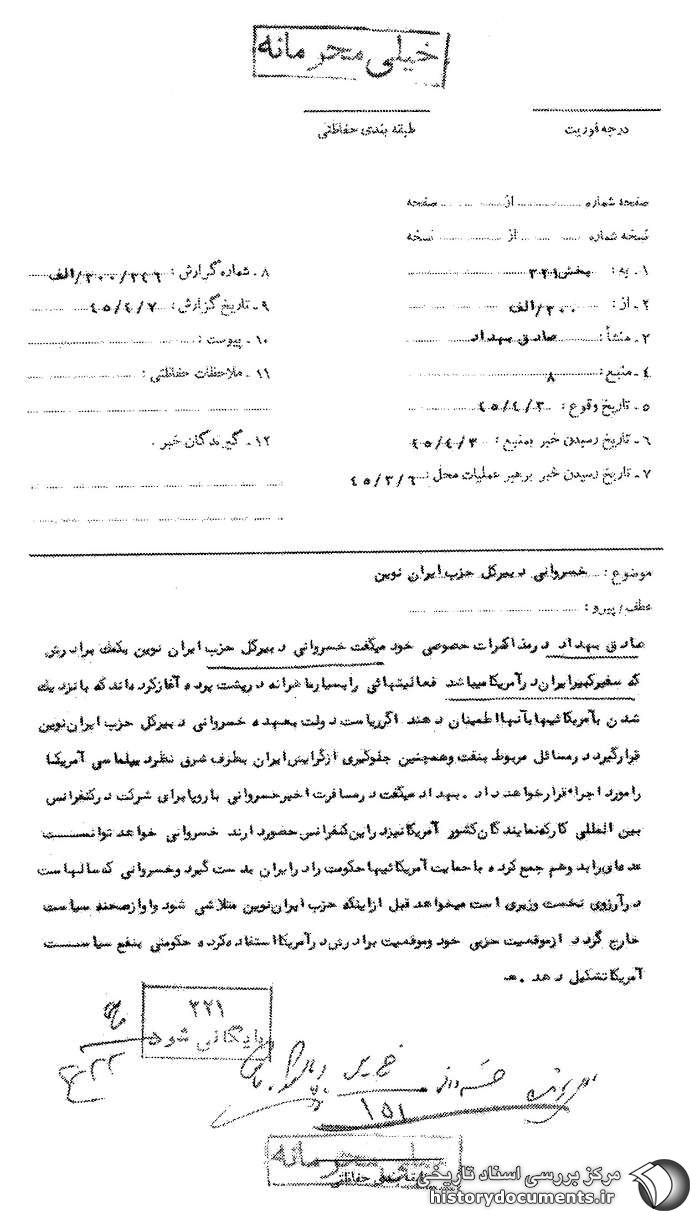 خیلی محرمانه
درجه فوریت
طبقه بندی حفاظتی
صفحه شماره از صفحه
نسخه شماره از نسخه
۱ـ به: بخش ۳۲۱
۲ـ از: ۳۰۰/الف
۳ـ منشأ: صادق بهداد
۴ـ منبع: ۸
۵ـ تاریخ وقوع: ۴۵/۴/۳
۶ـ تاریخ رسیدن خبر بمنبع: ۴۵/۴/۳
۷ـ تاریخ رسیدن خبر برهبر عملیات محل: ۴۵/۳/۶
۸ـ شماره گزارش: ۳۰۰/۲۴۶/الف
۹ـ تاریخ گزارش: ۴۵/۴/۷
۱۰ـ پیوست:
۱۱ـ ملاحظات حفاظتی:
۱۲ـ گیرندگان خبر.
موضوع: خسروانی دبیرکل حزب ایران نوین
عطف/پیرو:
صادق بهداد درمذاکرات خصوصی خود میگفت خسروانی دبیرکل حزب ایران نوین بکمک برادرش
که سفیرکبیرایران در آمریکا میباشد فعالیتهائی را بسیار ماهرانه درپشت پرده آغازکرده اند که با نزدیک
شدن بآمریکائیها بآنها اطمینان دهند اگر ریاست دولت بعهده خسروانی دبیرکل حزب ایران نوین
قرارگیرد در مسائل مربوط بنفت وهمچنین جلوگیری ازگرایش ایران بطرف شرق نظر دیپلماسی آمریکا
را مورد اجراء قرارخواهد داد. بهداد میگفت در مسافرت اخیرخسروانی باروپا برای شرکت درکنفرانس
بین المللی کار که نمایندگان کشور آمریکا نیز در این کنفرانس حضور دارند خسروانی خواهد توانست
عده ای را بدور هم جمع کرده با حمایت آمریکائیها حکومت را در ایران بدست گیرد وخسروانی که سالهاست
درآرزوی نخست وزیری است میخواهد قبل از اینکه حزب ایران نوین متلاشی شود واو از صحنه سیاست
خارج گردد از موقعیت حزبی خود وموقعیت برادرش در آمریکا استفاده کرده حکومتی بنفع سیاست
آمریکا تشکیل دهد. هـ
۳۲۱
بایگانی شود
۳۲۲
۱۵۱
خیلی محرمانه
طبقه بندی حفاظتی
مرکز بررسی اسناد تاریخی
historydocuments.ir